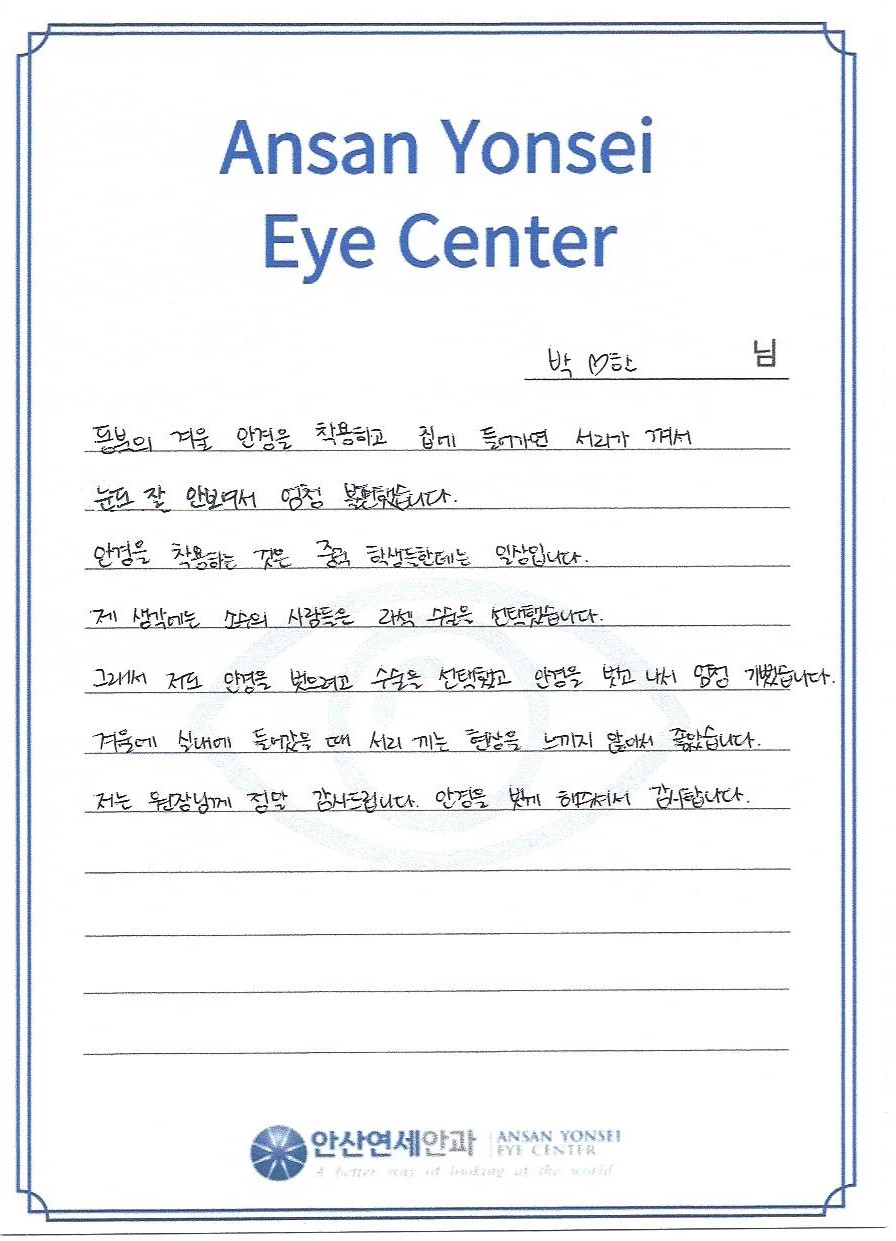 Ansan Yonsei
Eye Center
박 ♡한 님
동북의 겨울 안경을 착용하고 집에 들어가면 서리가 껴서
눈도 잘 안보여서 엄청 불편했습니다.
안경을 착용하는 것은 중국 학생들한테는 일상입니다.
제 생각에는 소수의 사람들은 라섹 수술을 선택했습니다.
그래서 저도 안경을 벗으려고 수술을 선택했고 안경을 벗고 나서 엄청 기뻤습니다.
겨울에 실내에 들어갔을 때 서리 끼는 현상을 느끼지 않아서 좋았습니다.
저는 원장님께 정말 감사드립니다. 안경을 벗게 해주셔서 감사합니다.
안산연세안과 ANSAN YONSEI
EYE CENTER
A better way of looking at the world